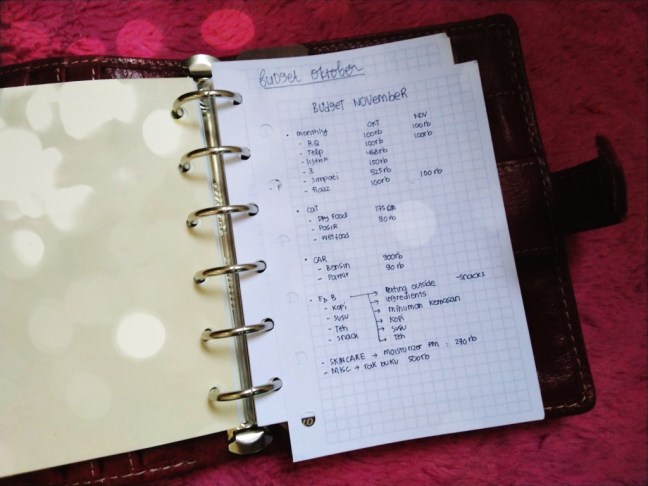 Budget Oktober
BUDGET NOVEMBER
OKT NOV
• Monthly 100rb 100rb
- BQ 100rb 100rb
- Telp 468rb
- Listrik 150rb
- 3 525rb
- Simpati 100rb
- Flazz 100rb
• Cat
- Dry Food 175rb
- Pasir 80rb
- Wet food
• CAR
- Bensin 300rb
- Parkir 90rb
• F&B → Eating outside - snacks
- Kopi → Ingredients
- Susu → Minuman kemasan
- Teh → Kopi
- Snack → Susu
→ Teh
- SKINCARE → moisturizer PM : 270rb
- MISC → rak buku 500rb